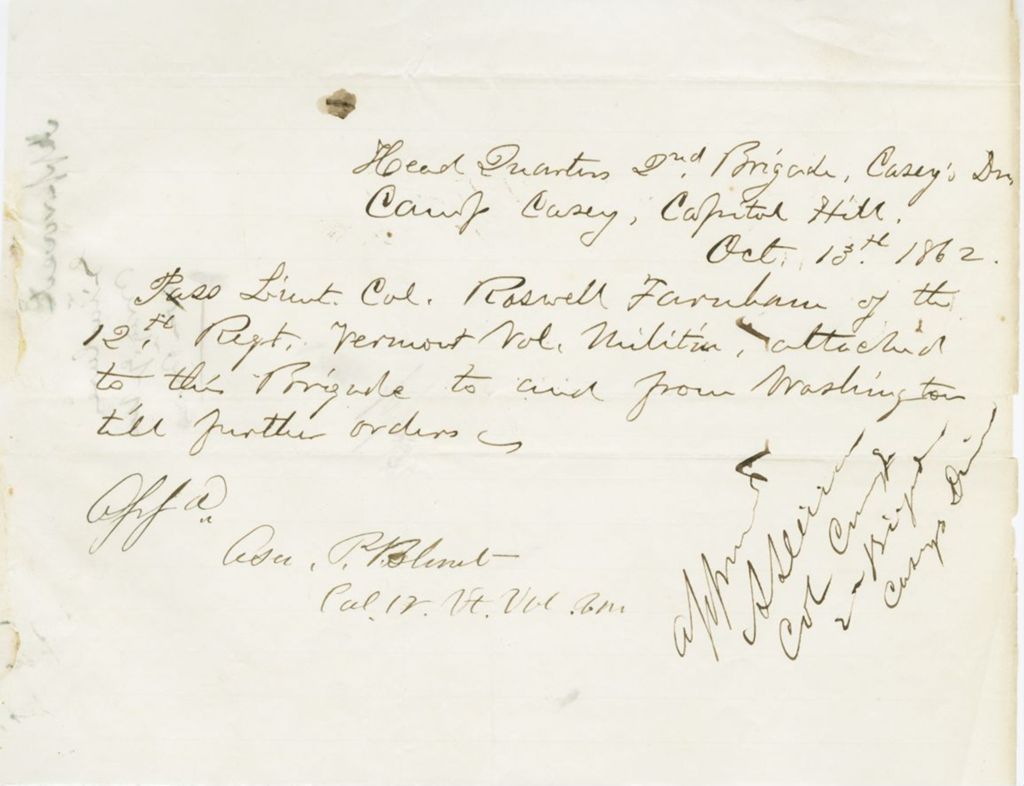 Head Quarters 2nd. Brigade, Casey's Div
Camp Casey, Capitol Hill.
Oct. 13th 1862.
Pass Lieut. Col. Roswell Farnham of the
12th. Regt. Vermont Vol. Militia, attached
to this Brigade to and from Washington
till further orders
Asa. P. Blunt
Col. 12. Vt. Vol.
Approved
Col Comdg
2d Brigade
Caseys Div